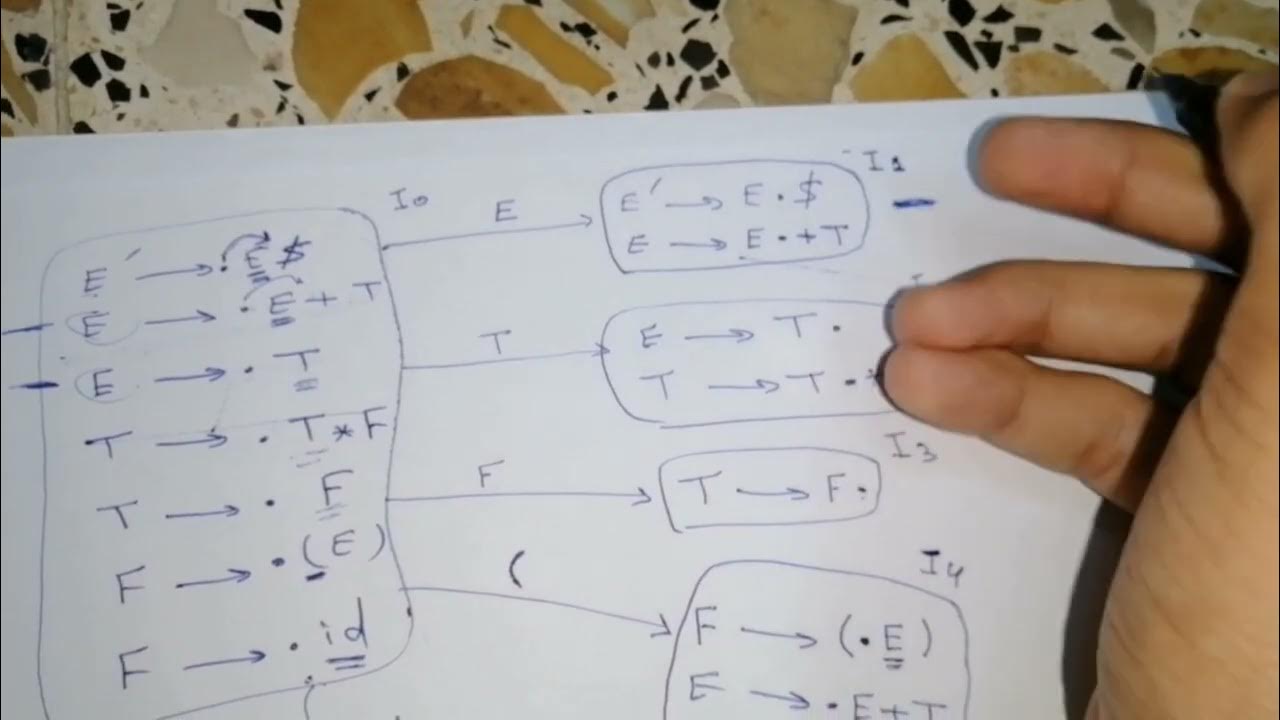 I0
E' → .E$
E → .E + T
E → .T
T → .T * F
T → .F
F → .(E)
F → .id
E
I1
E' → E.$
E → E.+T
T
E → T.
T → T.
F
I3
T → F.
(
I4
F → (.E)
E → .E+T